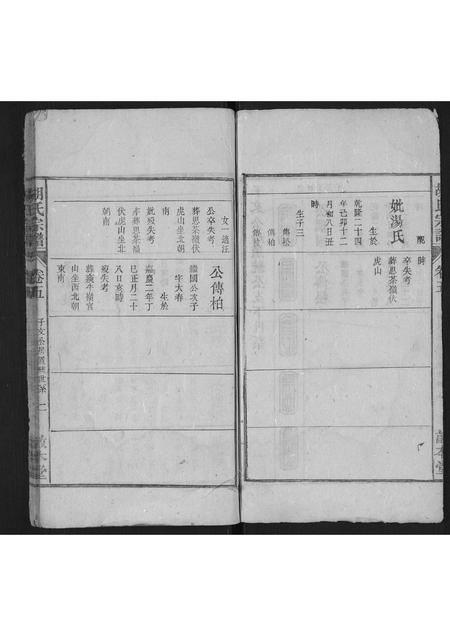 胡氏宗譜
卷五
時
卒失考
葬思茶嶺伏
虎山
妣湯氏
生於
乾隆二十四
年己卯十二
月初八日丑
時
生子三
傳松
傳柏
女一適汪
公卒失考
葬思茶嶺伏
虎山坐北朝
南
妣歿失考
亦葬思茶嶺
伏虎山坐北
朝南
公傳柏
繼國公次子
字大春
生於
嘉慶二年丁
巳正月二十
八日亥時
歿失考
山坐西北朝
東南
胡氏宗譜
卷五
二
敦本堂